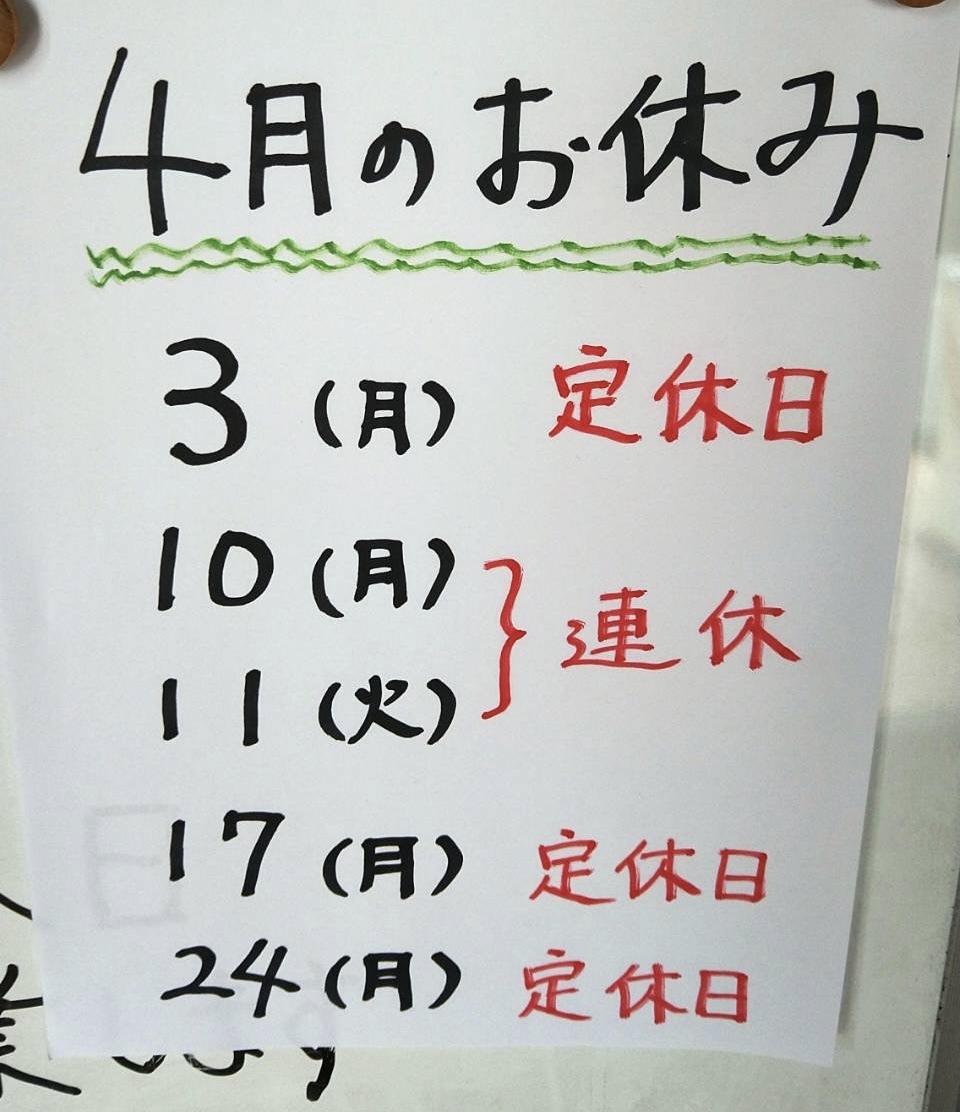 4月のお休み
3(月) 定休日
10(月)
11(火) } 連休
17(月) 定休日
24(月) 定休日